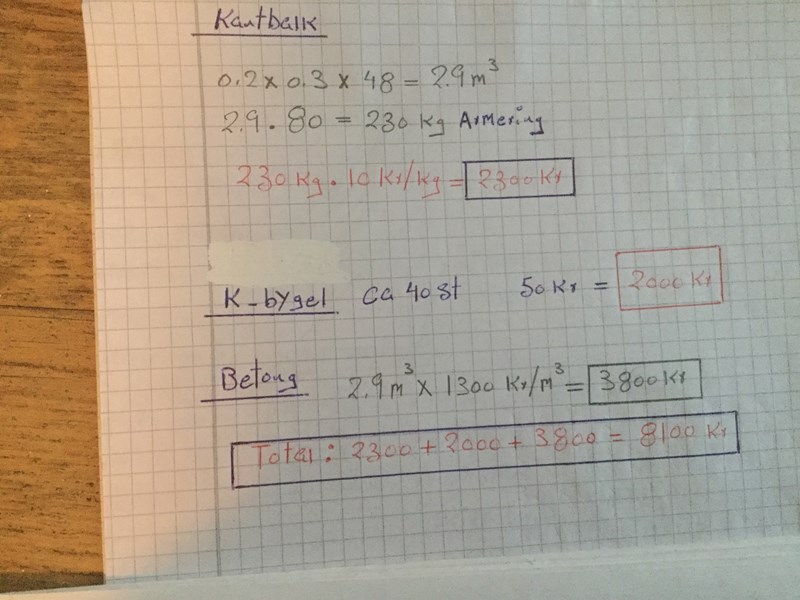 Kantbalk
0.2 x 0.3 x 48 = 2.9 m³
2.9 · 80 = 230 kg Armering
230 kg · 10 Kr/kg = 2300 Kr
K-bygel ca 40 st 50 Kr = 2000 Kr
Betong 2.9 m³ x 1300 Kr/m³ = 3800 Kr
Total: 2300 + 2000 + 3800 = 8100 Kr